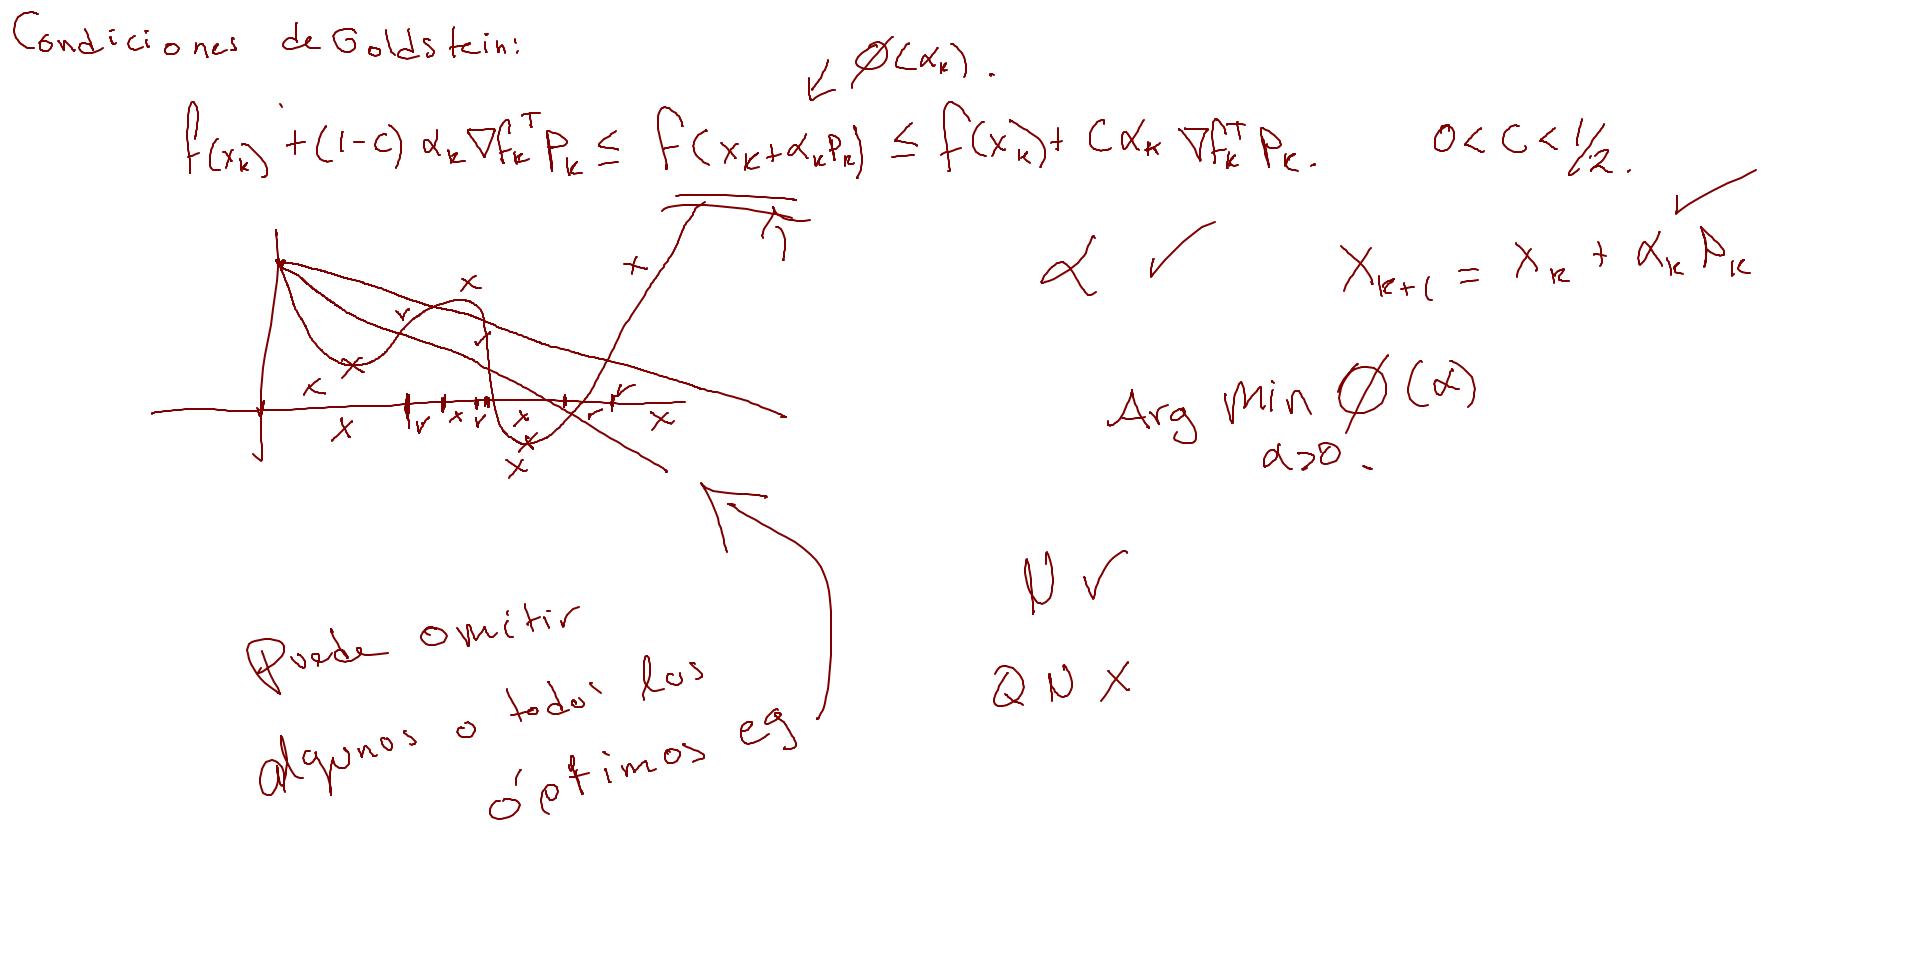 Condiciones de Goldstein:
ϕ(αₖ).
f(xₖ) + (1-c) αₖ ∇fₖᵀ Pₖ ≤ f(xₖ+αₖPₖ) ≤ f(xₖ) + c αₖ ∇fₖᵀ Pₖ. 0 < c < 1/2.
α ✓ xₖ₊₁ = xₖ + αₖ Pₖ ✓
Arg min ϕ(α)
α>0.
N ✓
Q N X
Puede omitir
algunos o todos los
óptimos eg